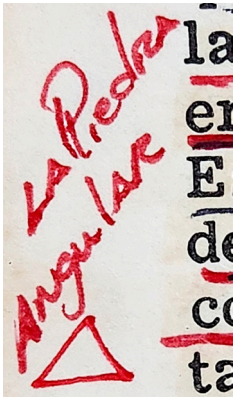 LA Piedra
Angular
la
en
E
de
co
ta